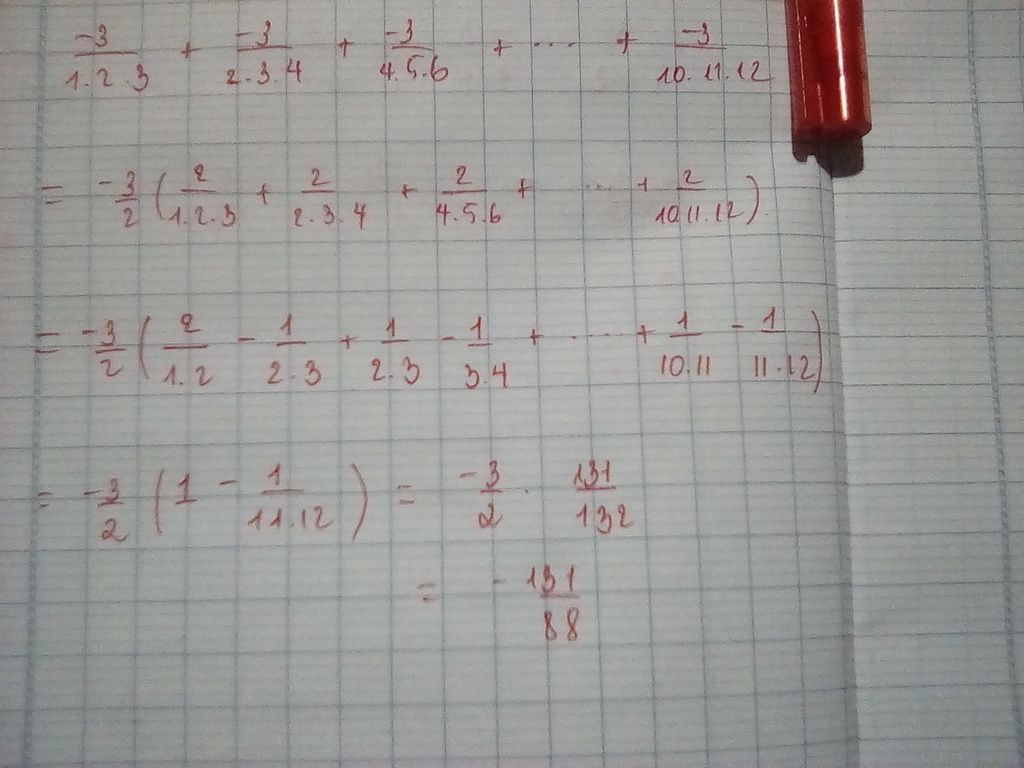 -3/1.2.3 + -3/2.3.4 + -3/4.5.6 + ... + -3/10.11.12
= -3/2 (2/1.2.3 + 2/2.3.4 + 2/4.5.6 + ... + 2/10.11.12)
= -3/2 (2/1.2 - 1/2.3 + 1/2.3 - 1/3.4 + ... + 1/10.11 - 1/11.12)
= -3/2 (1 - 1/11.12) = -3/2 . 131/132
= - 131/88